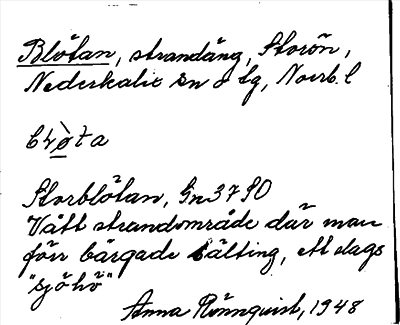 Blötan, strandäng, Storön,
Nederkalix sn o tg, Norrb. l
Storblötan, Gn 3790
Vått strandområde där man
förr bärgade sälting, ett slags
"sjöhö"
Anna Rönnquist, 1948